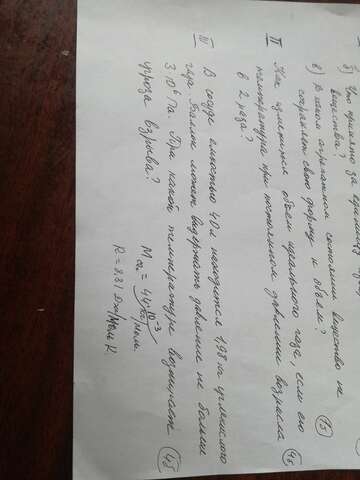 б) Что принято за единицу
вещества?
в) В каком агрегатном состоянии вещество не
сохраняет свою форму и объем? (1б)
II Как изменится объем идеального газа, если его
температура при постоянном давлении возросла
в 2 раза? (4б)
IV В сосуде емкостью 40 л находится 1,98 кг углекислого
газа. Баллон может выдержать давление не больше
3·10⁶ Па. При какой температуре возникает
угроза взрыва? (4б)
M CO₂ = 44·10⁻³ кг/моль.
R = 8,31 Дж/моль К.